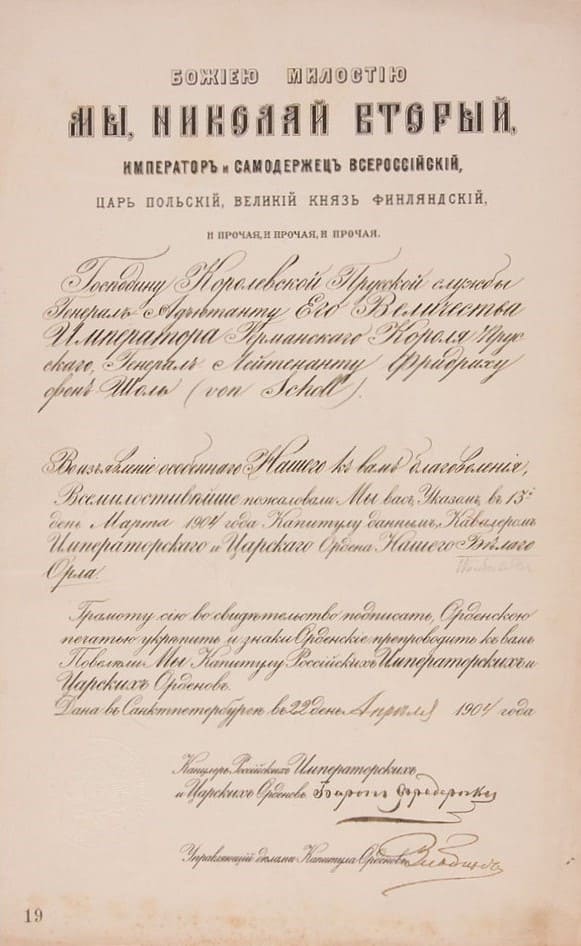 БОЖІЕЮ МИЛОСТІЮ
МЫ, НИКОЛАЙ ВТОРЫЙ,
ИМПЕРАТОРЪ и САМОДЕРЖЕЦЪ ВСЕРОССІЙСКІЙ,
ЦАРЬ ПОЛЬСКІЙ, ВЕЛИКІЙ КНЯЗЬ ФИНЛЯНДСКІЙ,
И ПРОЧАЯ, И ПРОЧАЯ, И ПРОЧАЯ.
Господину Королевской Прусской службы
Генералъ-Адъютанту Его Величества
Императора Германскаго Короля Прус
скаго, Генералъ-Лейтенанту Фридриху
фонъ Шоль (von Scholl).
Во изъявленіе особеннаго Нашего къ вамъ благоволенія,
Всемилостивѣйше пожаловали Мы васъ, Указомъ, въ 13й
день Марта 1904 года Капитулу даннымъ, Кавалеромъ
Императорскаго и Царскаго Ордена Нашего Бѣлаго
Орла.
Грамоту сію во свидѣтельство подписать, Орденскою
печатью укрѣпить и знаки Орденскіе препроводить къ вамъ
Повелѣли Мы Капитулу Россійскихъ Императорскихъ и
Царскихъ Орденовъ.
Дана въ Санктпетербургѣ въ 22 день Апрѣля 1904 года
Канцлеръ Россійскихъ Императорскихъ
и Царскихъ Орденовъ Баронъ Фредериксъ
Управляющій дѣлами Капитула Орденовъ
19